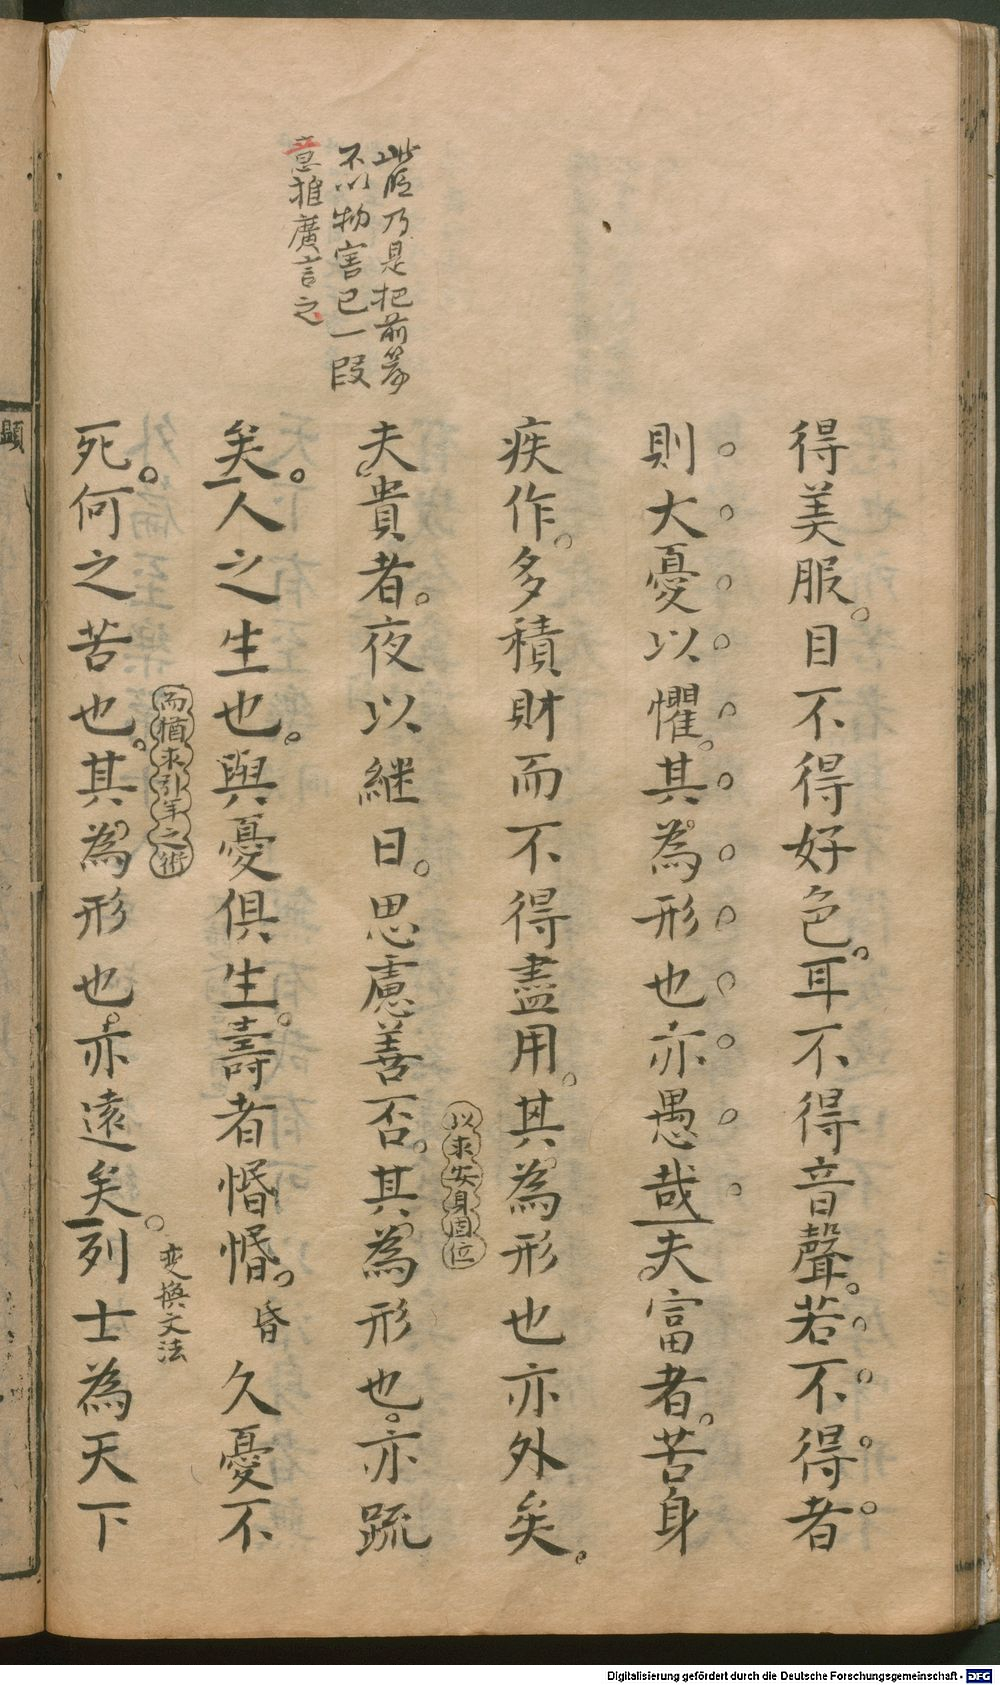 此段乃是把前篇
不以物害己一段
意推廣言之
得美服。目不得好色。耳不得音聲。若不得者
則大憂以懼。其為形也亦愚哉夫富者。苦身
疾作。多積財而不得盡用。其為形也亦外矣。
以求安身固位
夫貴者。夜以繼日。思慮善否。其為形也。亦疏
矣。人之生也。與憂俱生。壽者惛惛。昏久憂不
而猶求引年之術
變換文法
死。何之苦也。其為形也。亦遠矣。列士為天下
顯
Digitalisierung gefördert durch die Deutsche Forschungsgemeinschaft - DFG